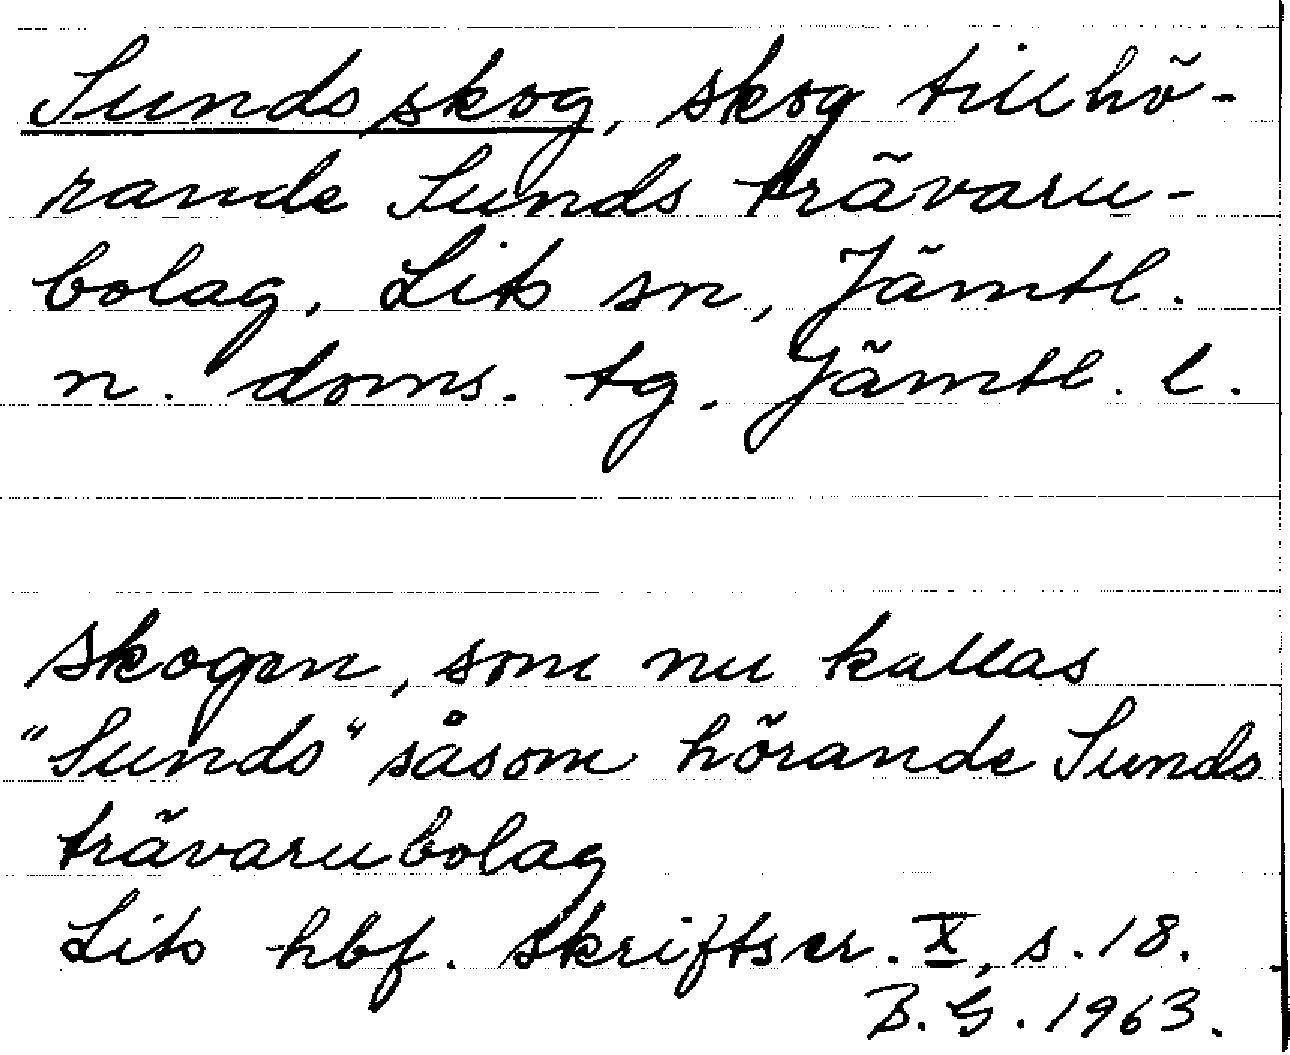 Sunds skog, skog tillhö-
rande Sunds trävaru-
bolag, Lits sn, Jämtl.
n. doms. tg. Jämtl. l.
skogen, som nu kallas
"Sunds" såsom hörande Sunds
trävarubolag
Lits hbf. skriftser. X, s. 18.
B. G. 1963.